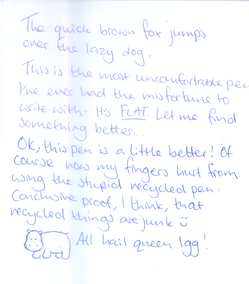 The quick brown fox jumps
over the lazy dog.
This is the most uncomfortable pen
I've ever had the misfortune to
write with. Its FLAT. Let me find
something better...
Ok, this pen is a little better! Of
course now my fingers hurt from
using the stupid recycled pen.
Conclusive proof, I think, that
recycled things are junk ☺
All hail queen Igg!